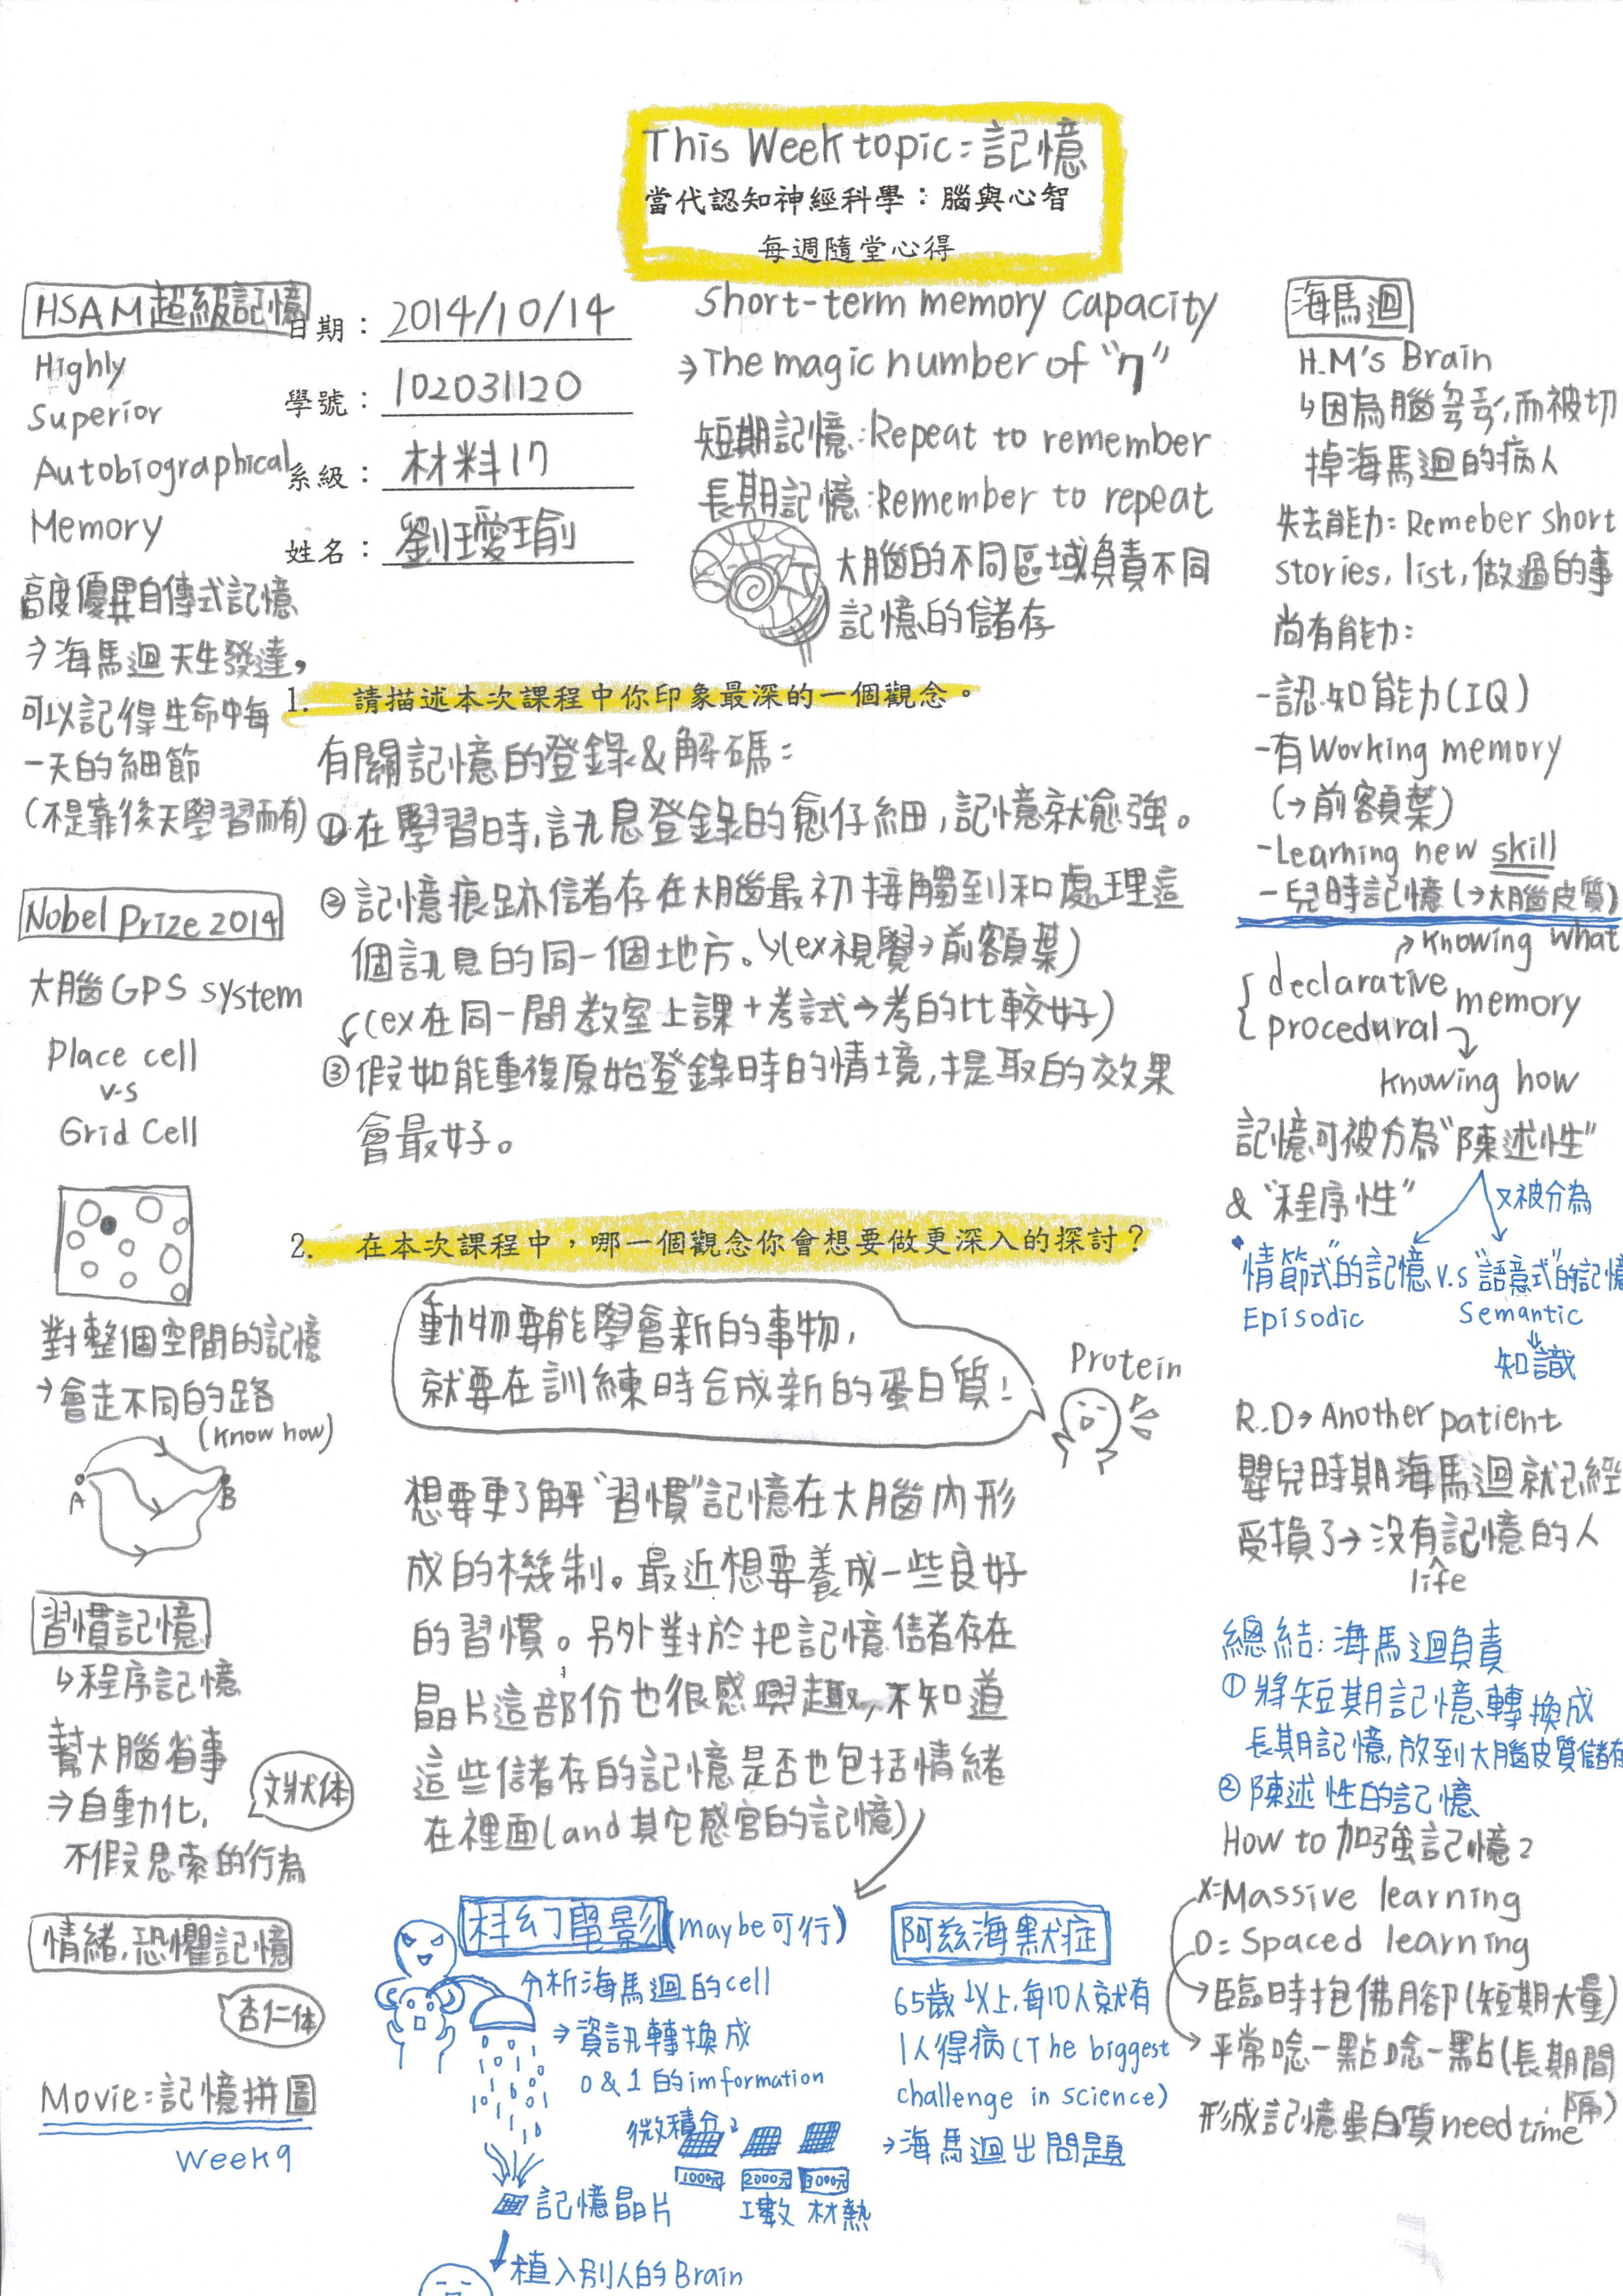 This Week topic = 記憶
當代認知神經科學：腦與心智
每週隨堂心得
HSAM 超級記憶
Highly
Superior
Autobiographical
Memory
高度優異自傳式記憶
→海馬迴天生發達,
可以記得生命中每
一天的細節
(不是靠後天學習而有)
日期： 2014/10/14
學號： 102031120
系級： 材料17
姓名： 劉璦瑜
Short-term memory capacity
→The magic number of "7"
短期記憶:Repeat to remember
長期記憶:Remember to repeat
大腦的不同區域負責不同
記憶的儲存
1. 請描述本次課程中你印象最深的一個觀念。
有關記憶的登錄&解碼:
①在學習時,訊息登錄的愈仔細,記憶就愈強。
②記憶痕跡儲存在大腦最初接觸到和處理這
個訊息的同一個地方。↘(ex視覺→前額葉)
(ex在同一間教室上課+考試→考的比較好)
③假如能重複原始登錄時的情境,提取的效果
會最好。
Nobel Prize 2014
大腦GPS system
Place cell
v.s
Grid Cell
對整個空間的記憶
→會走不同的路
(know how)
A
B
習慣記憶
↳程序記憶
幫大腦省事
⇒自動化,
不假思索的行為
文狀体
情緒,恐懼記憶
杏仁体
Movie:記憶拼圖
Week9
2. 在本次課程中，哪一個觀念你會想要做更深入的探討？
動物要能學會新的事物,
就要在訓練時合成新的蛋白質!
Protein
想要更了解"習慣"記憶在大腦內形
成的機制。最近想要養成一些良好
的習慣。另外對於把記憶儲存在
晶片這部份也很感興趣,不知道
這些儲存的記憶是否也包括情緒
在裡面(and其它感官的記憶)
科幻電影(maybe可行)
分析海馬迴的cell
→資訊轉換成
0&1的imformation
微積分2
1000元 2000元 3000元
工數 材熱
記憶晶片
植入別人的Brain
阿茲海默症
65歲以上,每10人就有
1人得病(The biggest
challenge in science)
→海馬迴出問題
海馬迴
H.M's Brain
↳因為腦,而被切
掉海馬迴的病人
失去能力: Remeber short
stories, list, 做過的事
尚有能力:
-認知能力(IQ)
-有Working memory
(→前額葉)
-Learning new skill
-兒時記憶(→大腦皮質)
↗Knowing what
declarative
procedural
memory
Knowing how
記憶可被分為"陳述性"
&"程序性"
又被分為
"情節式"的記憶 v.s "語意式"的記憶
Episodic Semantic
知識
R.D→Another patient
嬰兒時期海馬迴就已經
受損了→沒有記憶的人
life
總結:海馬迴負責
①將短期記憶轉換成
長期記憶,放到大腦皮質儲存
②陳述性的記憶
How to 加強記憶?
X=Massive learning
O=Spaced learning
→臨時抱佛腳(短期大量)
→平常唸一點唸一點(長期間
隔)
形成記憶蛋白質need time